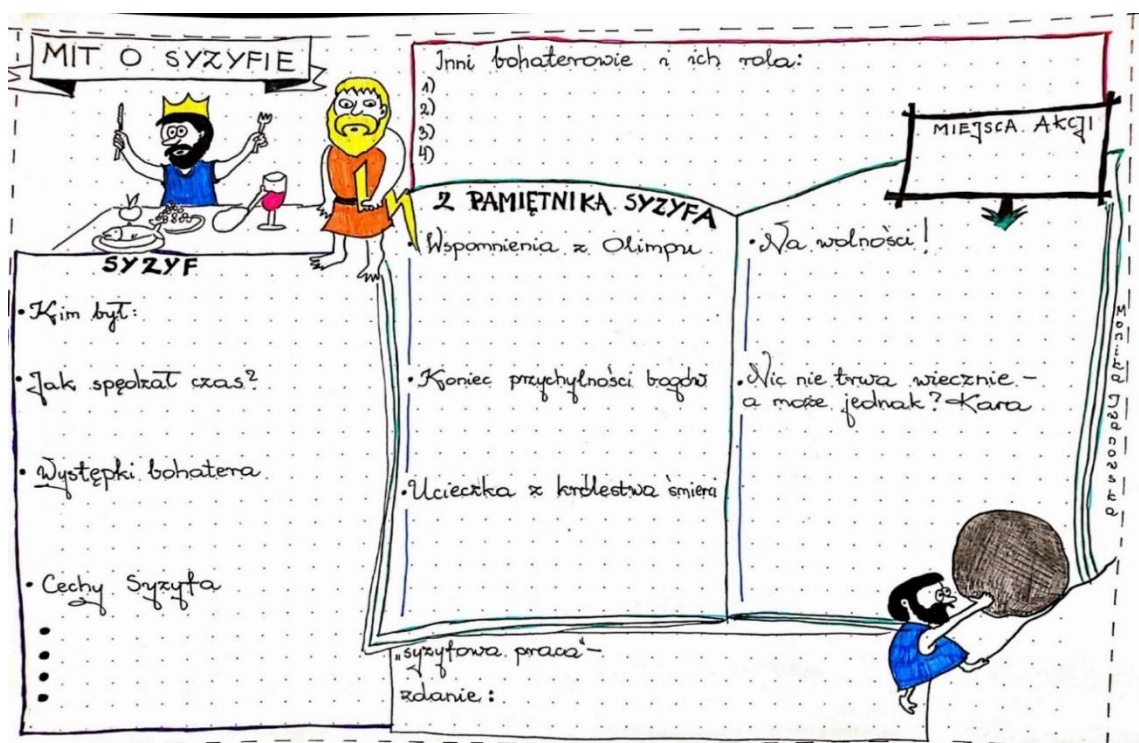 MIT O SYZYFIE
Inni bohaterowie i ich rola:
1)
2)
3)
4)
MIEJSCA AKCJI
SYZYF
• Kim był:
• Jak spędzał czas?
• Występki bohatera
• Cechy Syzyfa
•
•
•
•
Z PAMIĘTNIKA SYZYFA
• Wspomnienia z Olimpu
• Koniec przychylności bogów
• Ucieczka z królestwa śmierci
• Na wolności!
• Nic nie trwa wiecznie –
a może jednak? Kara
„syzyfowa praca” –
zdanie:
Monika Iwanowska